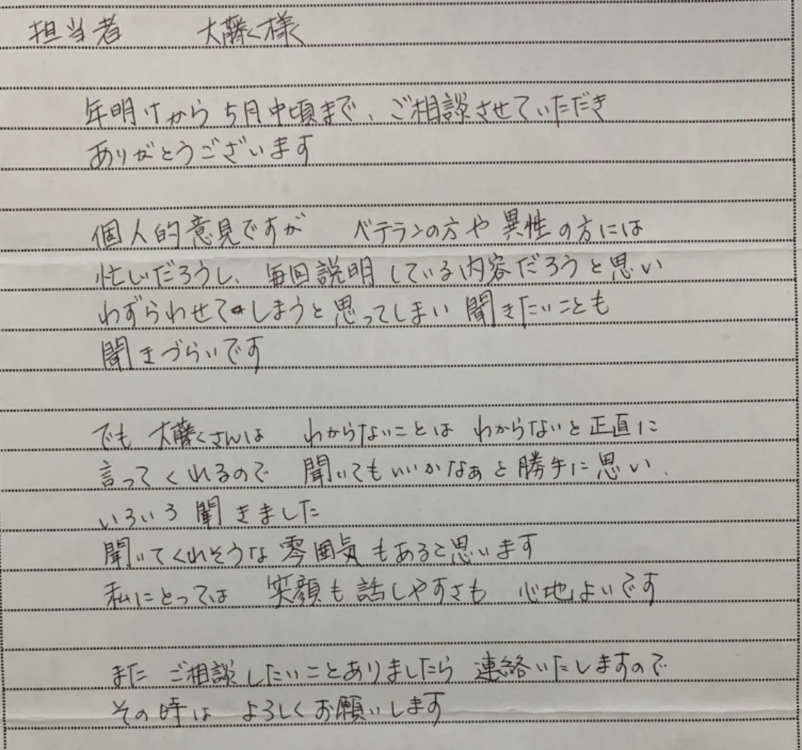 担当者 大藤く様
年明けから5月中頃まで、ご相談させていただき
ありがとうございます
個人的意見ですが ベテランの方や異性の方には
忙しいだろうし、毎回説明している内容だろうと思い
わずらわせてしまうと思ってしまい 聞きたいことも
聞きづらいです
でも 大藤くさんは わからないことは わからないと正直に
言ってくれるので 聞いてもいいかなぁと勝手に思い、
いろいろ聞きました
聞いてくれそうな雰囲気もあると思います
私にとっては 笑顔も話しやすさも 心地よいです
また ご相談したいことありましたら 連絡いたしますので
その時は よろしくお願いします